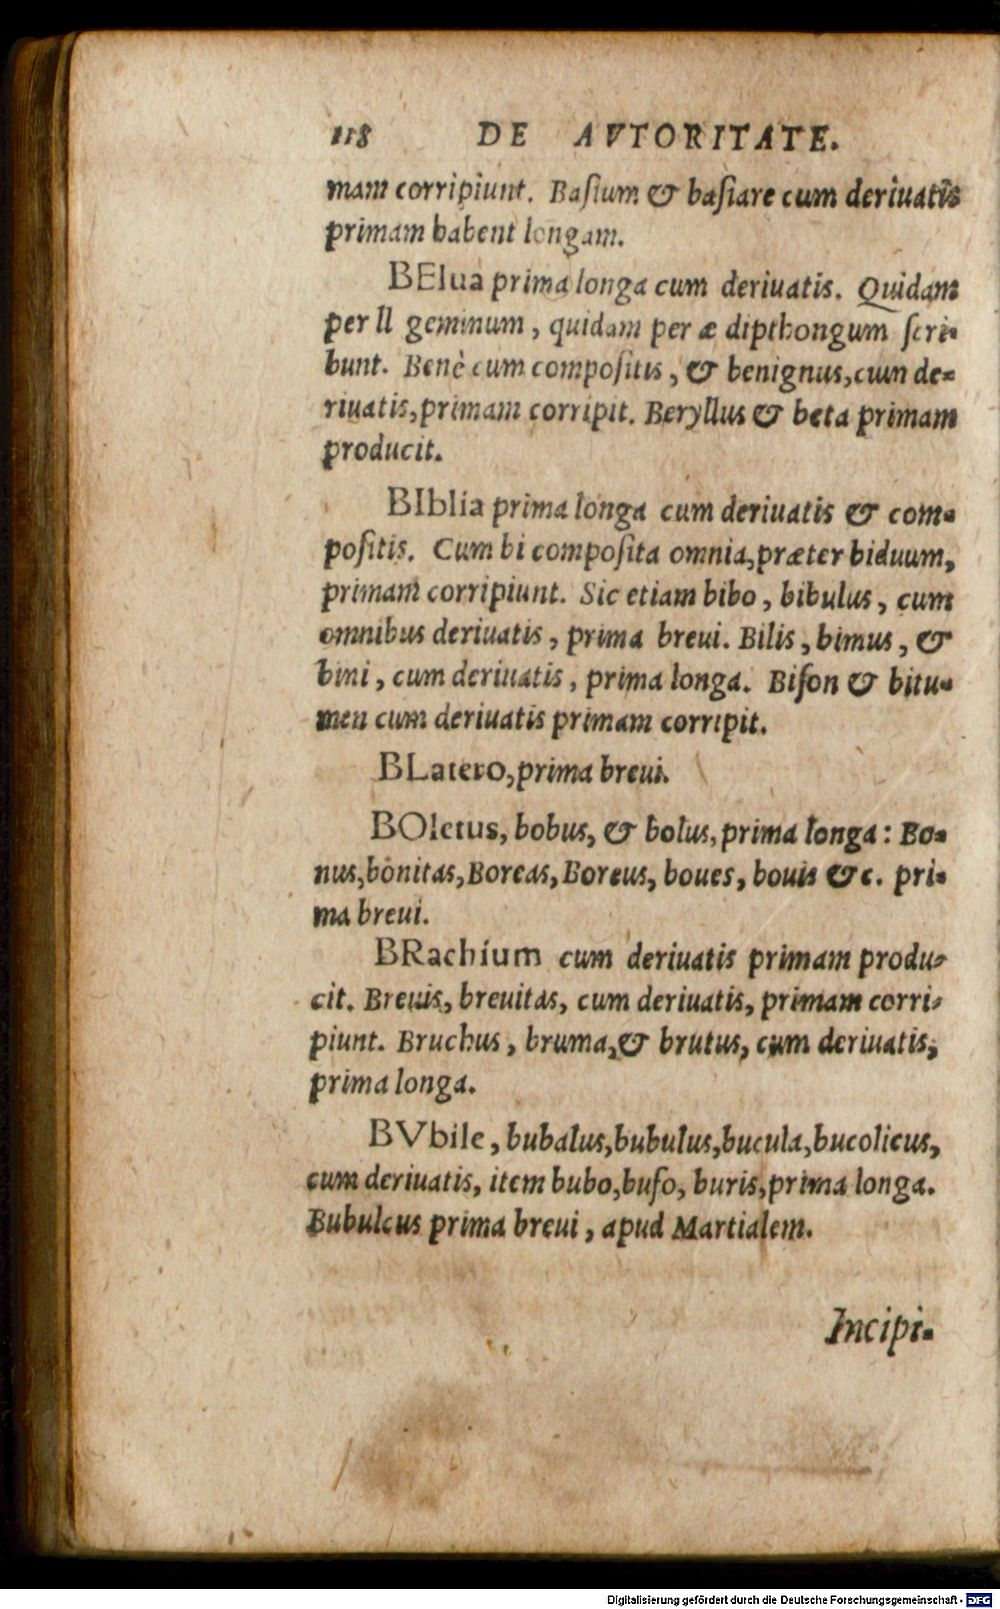 118 DE AVTORITATE.
mam corripiunt. Baſium & baſiare cum deriuatis
primam habent longam.
BElua prima longa cum deriuatis. Quidam
per ll geminum, quidam per æ dipthongum ſcri-
bunt. Benè cum compoſitis, & benignus, cum de-
riuatis, primam corripit. Beryllus & beta primam
producit.
BIblia prima longa cum deriuatis & com-
poſitis. Cum bi compoſita omnia, præter biduum,
primam corripiunt. Sic etiam bibo, bibulus, cum
omnibus deriuatis, prima breui. Bilis, bimus, &
bini, cum deriuatis, prima longa. Biſon & bitu-
men cum deriuatis primam corripit.
BLatero, prima breui.
BOletus, bobus, & bolus, prima longa: Bo-
nus, bonitas, Boreas, Boreus, boues, bouis &c. pri-
ma breui.
BRachíum cum deriuatis primam produ-
cit. Breuis, breuitas, cum deriuatis, primam corri-
piunt. Bruchus, bruma, & brutus, cum deriuatis,
prima longa.
BVbile, bubalus, bubulus, bucula, bucolicus,
cum deriuatis, item bubo, bufo, buris, prima longa.
Bubulcus prima breui, apud Martialem.
Incipi-
Digitalisierung gefördert durch die Deutsche Forschungsgemeinschaft - DFG